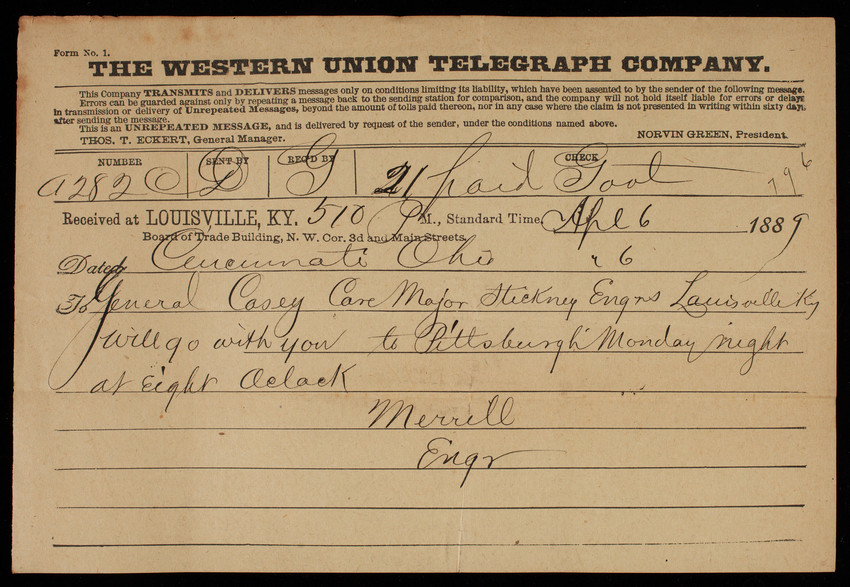 Form No. 1.
THE WESTERN UNION TELEGRAPH COMPANY.
This Company TRANSMITS and DELIVERS messages only on conditions limiting its liability, which have been assented to by the sender of the following message.
Errors can be guarded against only by repeating a message back to the sending station for comparison, and the company will not hold itself liable for errors or delays
in transmission or delivery of Unrepeated Messages, beyond the amount of tolls paid thereon, nor in any case where the claim is not presented in writing within sixty days,
after sending the message.
This is an UNREPEATED MESSAGE, and is delivered by request of the sender, under the conditions named above.
THOS. T. ECKERT, General Manager. NORVIN GREEN, President.
NUMBER SENT BY REC'D BY CHECK
a282 D G 21 paid Govt
Received at LOUISVILLE, KY. 510 P M., Standard Time, Apl 6 1889
Board of Trade Building, N. W. Cor. 3d and Main Streets.
Dated Cincinnati Ohio " 6
To General Casey Care Major Stickney Engrs Louisville Ky
Will go with you to Pittsburgh Monday night
at Eight Oclock
Merrill
Engr